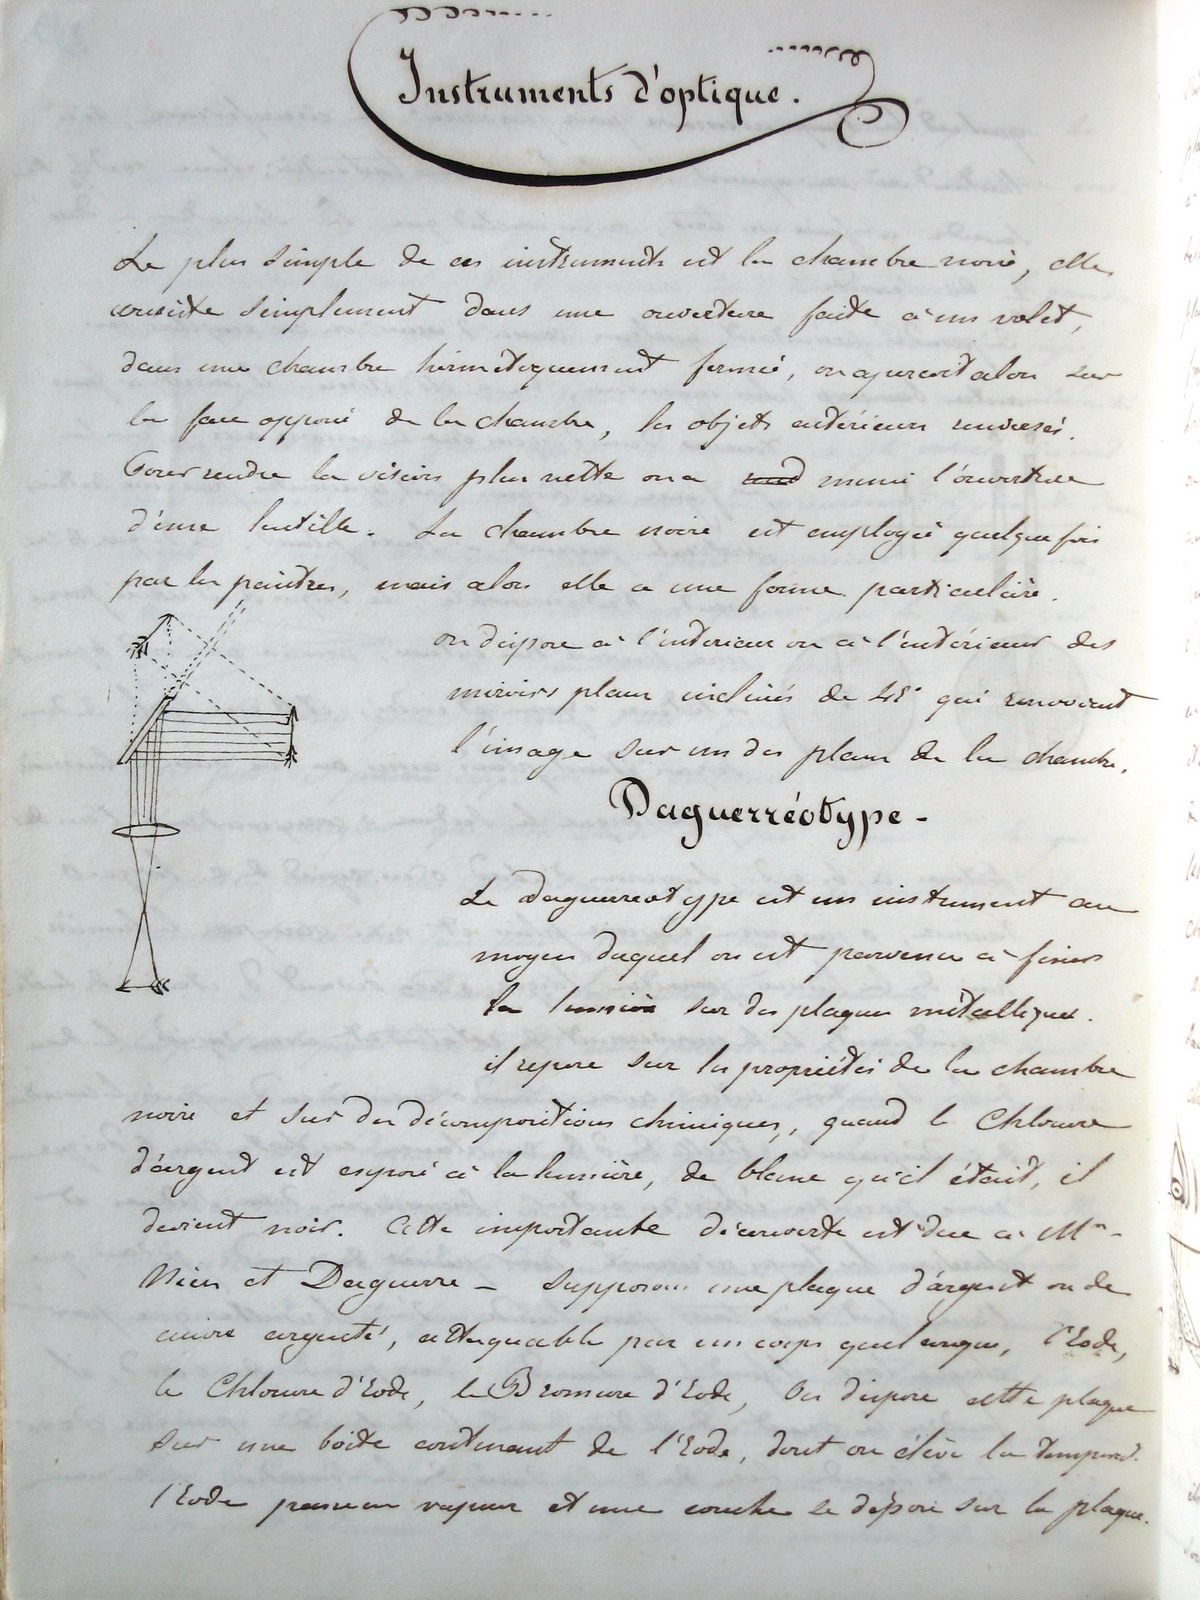 Instruments d'optique.
Le plus simple de ces instruments est la chambre noire, elle
consiste simplement dans une ouverture faite à un volet,
dans une chambre hermetiquement fermé, on aperçoit alors sur
la face opposé de la chambre, les objets extérieurs renversés.
Pour rendre la vision plus nette on a muni l'ouverture
d'une lentille. La chambre noire est employé quelque fois
par les peintres, mais alors elle a une forme particulière.
on dispose à l'interieur ou à l'extérieur des
miroirs plans inclinés de 45° qui renvoient
l'image sur un des plans de la chambre.
Daguerréotype -
Le Daguerreotype est un instrument au
moyen duquel on est parvenu à fixer
la lumière sur des plaques métalliques.
il repose sur les propriétés de la chambre
noire et sur des décompositions chimiques, quand le Chlorure
d'argent est exposé à la lumière, de blanc qu'il était, il
devient noir. Cette importante découverte est due à Mrs
Nieps et Daguerre - Supposons une plaque d'argent ou de
cuivre argenté, attaquable par un corps quelconque, l'Iode,
le Chlorure d'Iode, le Bromure d'Iode, On dispose cette plaque
sur une boite contenant de l'Iode, dont on élève la temperat.
l'Iode passe en vapeur et une couche se dépose sur la plaque.